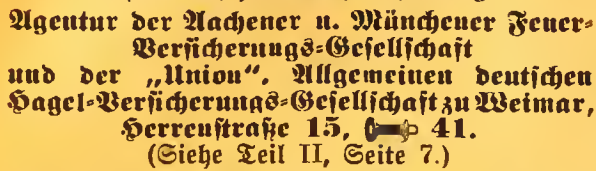 Agentur der Aachener u. Münchener Feuer-
Versicherungs-Gesellschaft
und der „Union“, Allgemeinen deutschen
Hagel-Versicherungs-Gesellschaft zu Weimar,
Herrenstraße 15, 41.
(Siehe Teil II, Seite 7.)